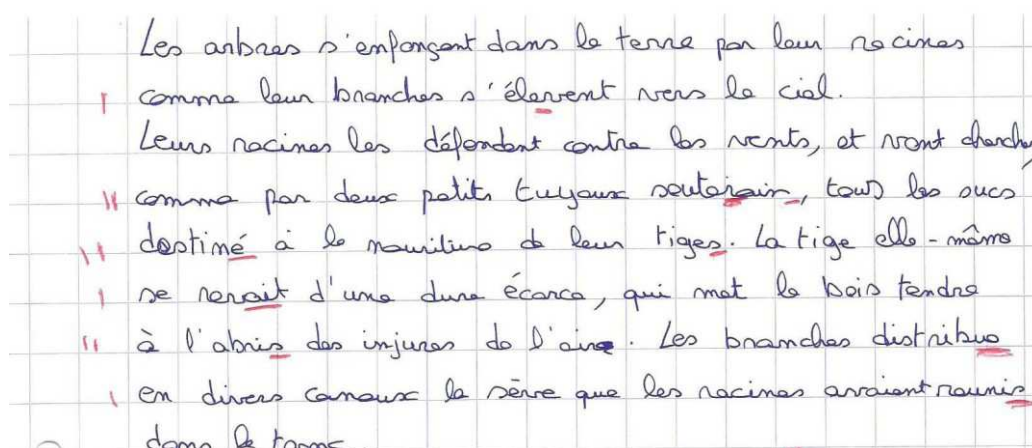 Les arbres s'enfonçent dans la terre par leur racines
comme leur branches s'élevent vers le ciel.
Leurs racines les défendent contre les vents, et vont cherche,
comme par deux petits tuyaux soutérain, tous les sucs
destiné à la nouriture de leur tiges. La tige elle-même
se revait d'une dure écorce, qui met le bois tendre
à l'abris des injures de l'aire. Les branches distribue
en divers canaux la sève que les racines avaient reunis
dans le